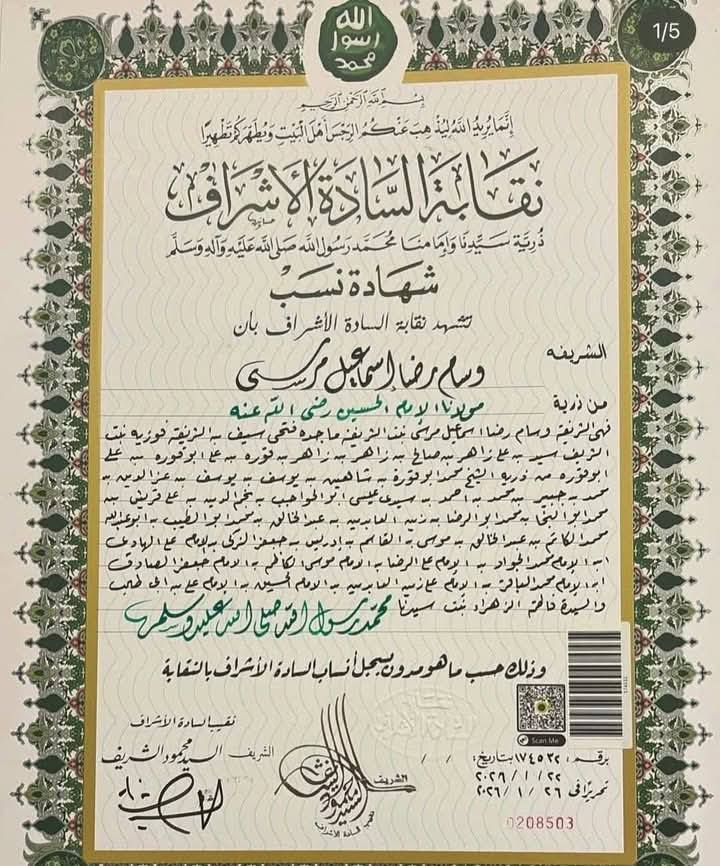 1/5
الله
رسول
محمد
بسم الله الرحمن الرحيم
إنما يريد الله ليذهب عنكم الرجس أهل البيت ويطهركم تطهيرا
نقابة السادة الأشراف
ذرية سيدنا وإمامنا محمد رسول الله صلى الله عليه وآله وسلم
شهادة نسب
تشهد نقابة السادة الأشراف بأن
الشريفه
وسام رضا اسماعيل مرسى
من ذرية
مولانا الإمام الحسين رضى الله عنه
فهى الشريفة وسام رضا اسماعيل مرسى بنت الشريفة ماجده فتحى سيف بنت الشريفة فوزيه بنت
الشريف سيد بن على زاهر بن صالح بن زاهر بن زاهر بن فوره بن على ابو فوره بن على
ابو فوره من ذرية الشيخ محمد ابو فورة بن شاهين بن يوسف بن يوسف بن عز الدين بن
محمد بن محمد بن احمد بن سيدى عيسى ابو المواهب بن نجم الدين بن على قريش بن
محمد ابو النجا بن محمد ابو الرضا بن زين العابدين بن عبد الخالق بن محمد ابو الطيب بن ابو عبدالله
محمد الكاتم بن عبد الخالق بن موسى بن القاسم بن إدريس بن جعفر الزكى بن الإمام على الهادى
ابن الإمام محمد الجواد بن الإمام على الرضا بن الإمام موسى الكاظم بن الإمام جعفر الصادق
ابن الإمام محمد الباقر بن الإمام على زين العابدين بن الإمام الحسين بن الإمام على بن ابى طالب
والسيدة فاطمة الزهراء بنت سيدنا محمد رسول الله صلى الله عليه وسلم
وذلك حسب ما هو مدون بسجل أنساب السادة الأشراف بالنقابة
Scan Me
نقيب السادة الأشراف
السيد محمود الشريف
الشريف
الشريف
نقيب السادة الأشراف
برقم: ١٧٤٥٣٢ بتاريخ: / /
٢٠٢٦ / ١ / ٢٢
تحريرًا فى ٢٦ / ١ / ٢٠٢٦
0208503